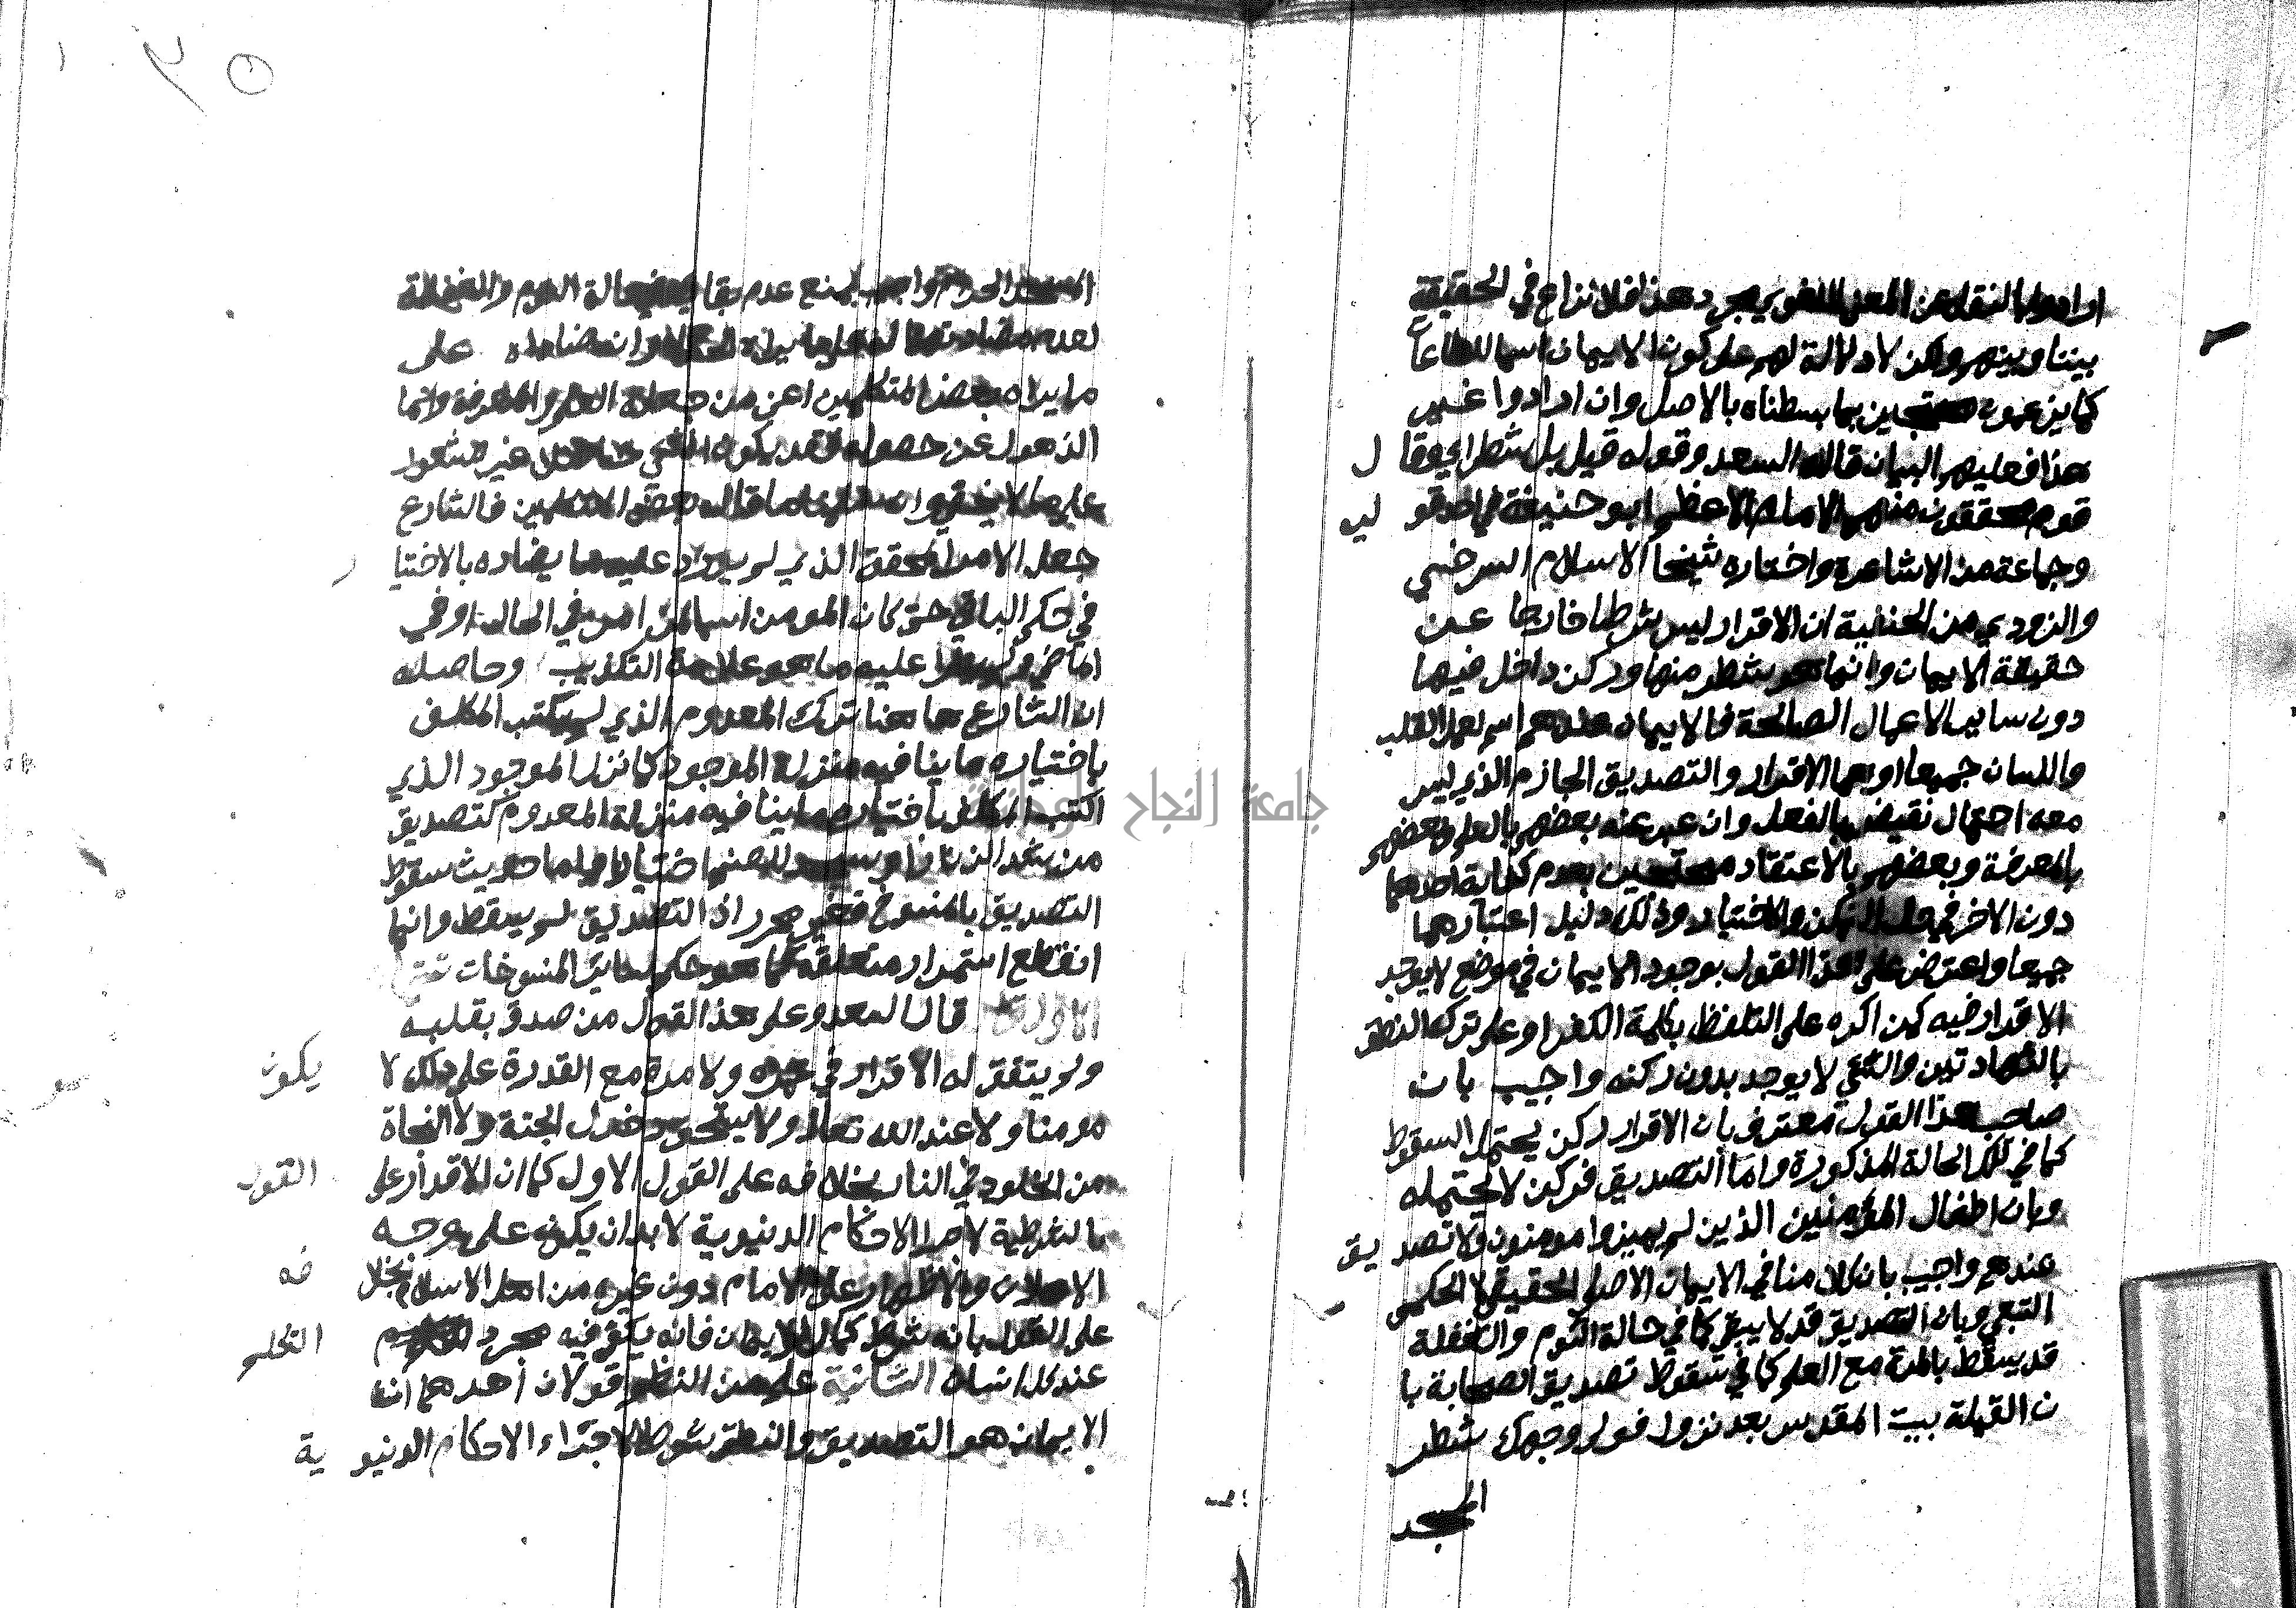 ارادوا بالنقل عن المعنى اللغوي مجرد هذا فلا نزاع في الحقيقة
بيننا وبينهم ولكن لا دلالة لهم على كون الايمان اسما للطاعات
كما يزعمون محتجين بما بسطناه بالاصل وان ارادوا غير
هذا فعليهم البيان قاله السعد وقوله قيل بل شطر اي وقال
قوم محققون منهم الامام الاعظم ابو حنيفة في احد قوليه
وجماعة من الاشاعرة واختاره شيخا الاسلام السرخسي
والبزودي من الحنفية ان الاقرار ليس شرطا خارجا عن
حقيقة الايمان وانما هو شطر منها وركن داخل فيها
دون ساير الاعمال الصالحة فالايمان عندهم اسم لعمل القلب
واللسان جميعا وهما الاقرار والتصديق الجازم الذي ليس
معه احتمال نقيض بالفعل وان عبر عنه بعضهم بالعلم وبعضهم
بالمعرفة وبعضهم بالاعتقاد محتجين بعدم كفاية احدهما
دون الاخر في حال التمكن والاختيار وذلك دليل اعتبارهما
جميعا واعترض على هذا القول بوجود الايمان في موضع لا يوجد
الاقرار فيه كمن اكره على التلفظ بكلمة الكفر او على ترك النطق
بالشهادتين والشي لا يوجد بدون ركنه واجيب بان
صاحب هذا القول معترف بان الاقرار ركن يحتمل السقوط
كما في تلك الحالة المذكورة واما التصديق فركن لا يحتمله
وبان اطفال المؤمنين الذين لم يميزوا مومنون ولا تصديق
عندهم واجيب بان كلامنا في الايمان الاصلي الحقيقي لا الحكمي
التبعي وبان التصديق قد لا يبقى كما في حالة النوم والغفلة
قد يسقط بالمرة مع العلم كما في سقوط تصديق الصحابة با
ن القبلة بيت المقدس بعد نزول فول وجهك شطر
المسجد
المسجد الحرام واجيب بمنع عدم بقايه في حالة النوم والغفلة
على
ما يراه بعض المتكلمين اعني من جملة العلم والمعرفة وانما
الذهول عن حصوله فقد يكون الشي
بعض المتكلمين فالشارع
جعل الامر المحقق الذي لم يرد عليه ما يضاده بالاختيار
في حكم الباقي حتى كان المومن اسما لمن امن في الحال او في
الماضي ولم يطرا عليه ما هو علامة التكذيب وحاصله
ان الشارع هاهنا ترك المعدوم الذي لم يكتب المكلف
باختياره ما ينافيه منزلة الموجود كما نزل الموجود الذي
اكتسب المكلف باختياره ما ينافيه منزلة المعدوم كتصديق
من شد الزنار او سجد للصنم اختيارا واما حديث سقوط
التصديق بالمنسوخ فغير محرر اذ التصديق لم يسقط وانما
انقطع استمرار متعلقه كما هو حكم ساير المنسوخات
قال السعد وعلى هذا القول من صدق بقلبه
ولم يتفق له الاقرار في عمره ولا مرة مع القدرة على ذلك لا يكون
مومنا ولا عند الله تعالى ولا يستحق دخول الجنة ولا النجاة
من الخلود في النار بخلافه على القول الاول كما ان الاقرار على القول
بالشرطية لاجرا الاحكام الدنيوية لا بد ان يكون على وجه
الاعلان والاظهار على الامام دون غيره من اهل الاسلام بخلافه
على القول بانه شرط كمال الايمان فانه يكفي فيه مجرد التكلم
الثانية على هذا النظم قولان احدهما ان
الايمان هو التصديق والنطق شرط لاجراء الاحكام الدنيوية
جامعة النجاح الوطنية